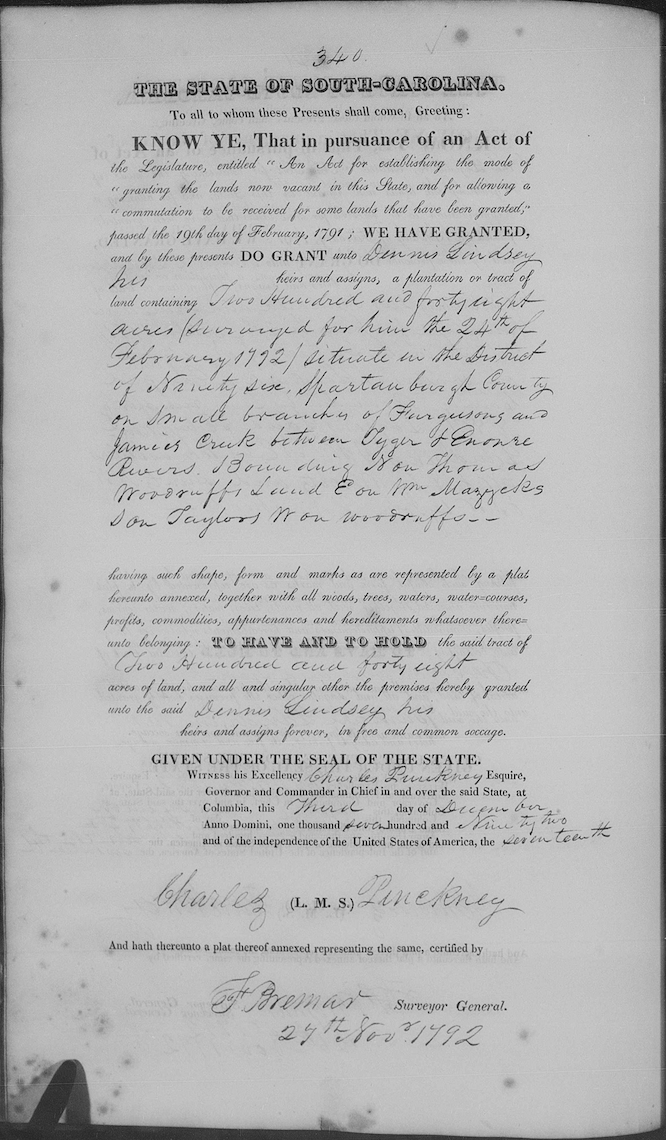 340.
THE STATE OF SOUTH-CAROLINA.
To all to whom these Presents shall come, Greeting:
KNOW YE, That in pursuance of an Act of
the Legislature, entitled "An Act for establishing the mode of
"granting the lands now vacant in this State, and for allowing a
"commutation to be received for some lands that have been granted,"
passed the 19th day of February, 1791; WE HAVE GRANTED,
and by these presents DO GRANT unto Dennis Lindsey
his heirs and assigns, a plantation or tract of
land containing Two Hundred and forty eight
acres (surveyed for him the 24th of
February 1792) situate in the District
of Ninety six, Spartanburgh County
on Small branches of Fergusons and
Jamies Creek between Tyger & Enoree
Rivers. Bounding N on Thomas
Woodruffs Land E on Wm Mazycks
S on Taylors W on woodruffs --
having such shape, form and marks as are represented by a plat
hereunto annexed, together with all woods, trees, waters, water=courses,
profits, commodities, appurtenances and hereditaments whatsoever there=
unto belonging: TO HAVE AND TO HOLD the said tract of
Two Hundred and forty eight
acres of land, and all and singular other the premises hereby granted
unto the said Dennis Lindsey his
heirs and assigns forever, in free and common soccage.
GIVEN UNDER THE SEAL OF THE STATE.
WITNESS his Excellency Charles Pinckney Esquire,
Governor and Commander in Chief in and over the said State, at
Columbia, this Third day of December
Anno Domini, one thousand seven hundred and Ninety two
and of the independence of the United States of America, the seventeenth
Charles (L. M. S.) Pinckney
And hath thereunto a plat thereof annexed representing the same, certified by
F Bremar Surveyor General.
27th Novr. 1792